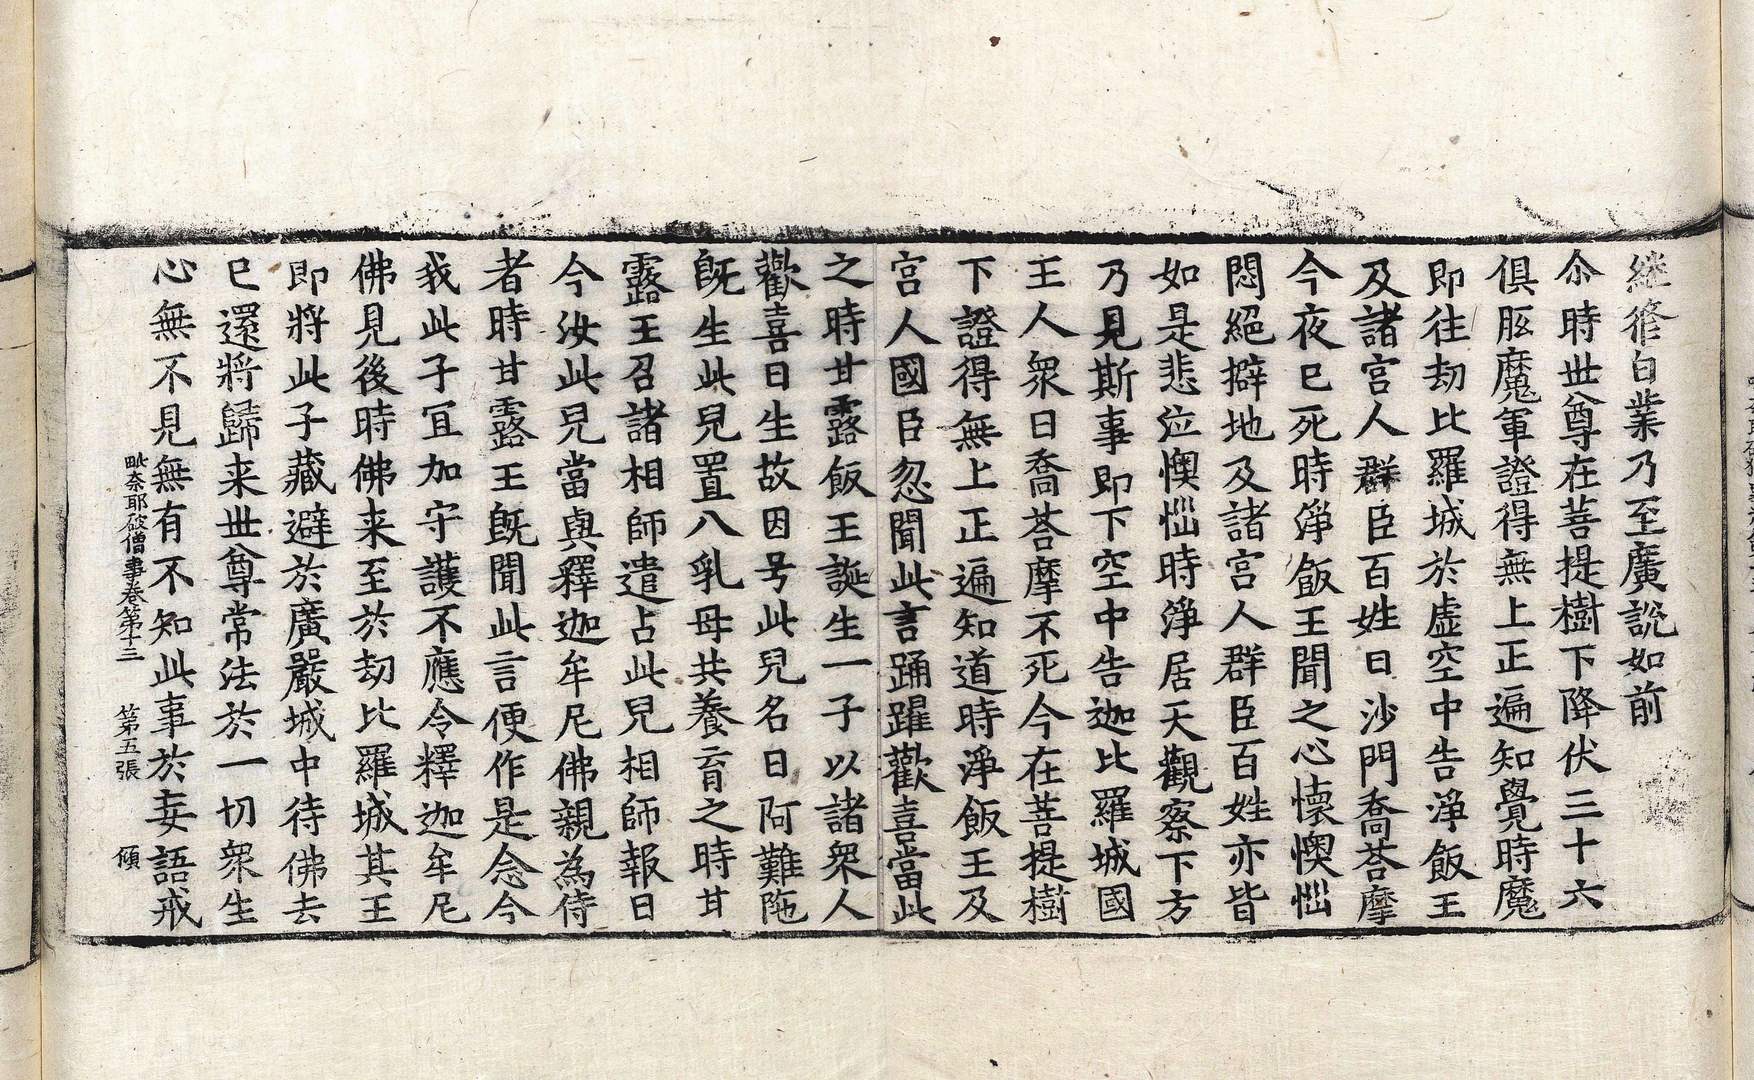 継脩白業乃至廣說如前
尒時世尊在菩提樹下降伏三十六
俱胝魔軍證得無上正遍知覺時魔
即往劫比羅城於虛空中告淨飯王
及諸宮人群臣百姓曰沙門喬荅摩
今夜已死時淨飯王聞之心懷懊惱
悶絕擗地及諸宮人群臣百姓亦皆
如是悲泣懊惱時淨居天觀察下方
乃見斯事即下空中告迦比羅城國
王人衆曰喬荅摩不死今在菩提樹
下證得無上正遍知道時淨飯王及
宮人國臣忽聞此言踊躍歡喜當此
之時甘露飯王誕生一子以諸衆人
歡喜日生故因号此兒名曰阿難陁
旣生此兒置八乳母共養育之時甘
露王召諸相師遣占此兒相師報曰
今汝此兒當與釋迦牟尼佛親為侍
者時甘露王旣聞此言便作是念今
我此子冝加守護不應令釋迦牟尼
佛見後時佛来至於劫比羅城其王
即將此子藏避於廣嚴城中待佛去
已還將歸来世尊常法於一切衆生
心無不見無有不知此事於妄語戒
毗奈耶破僧事卷第十三　第五張　傾